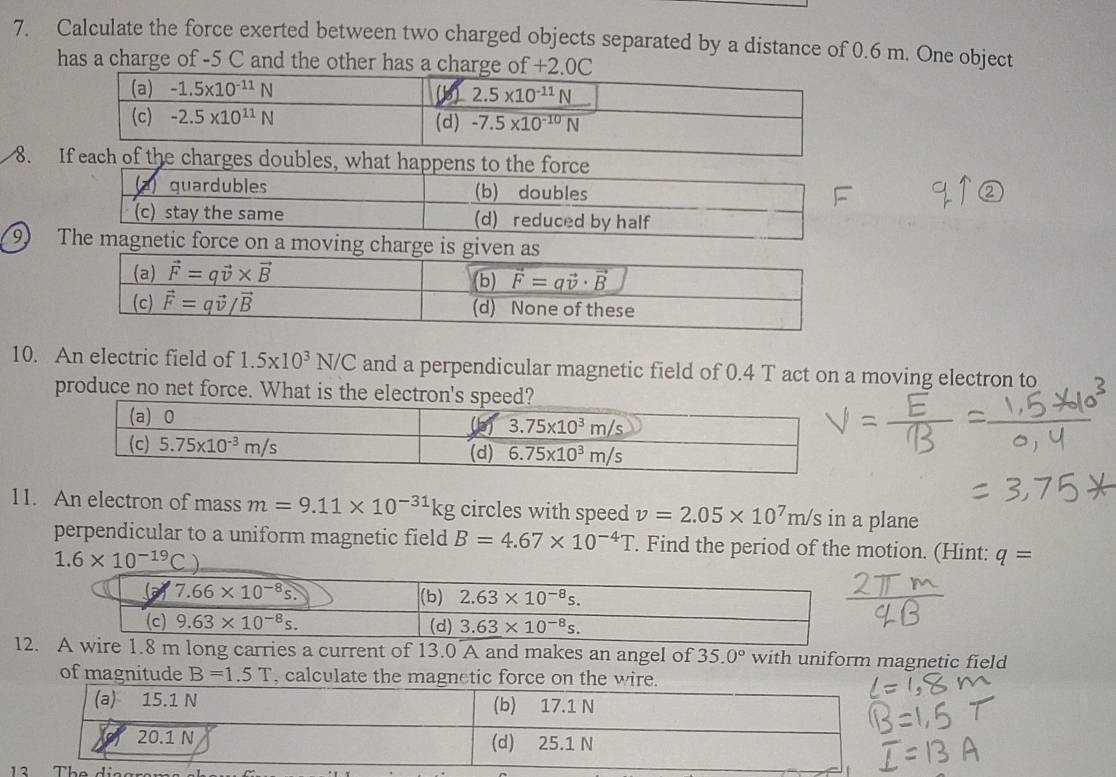 7. Calculate the force exerted between two charged objects separated by a distance of 0.6 m. One object
has a charge of -5 C and the other has a charge of +2.0C
(a) -1.5x10⁻¹¹ N (b) 2.5 x10⁻¹¹ N
(c) -2.5 x10¹¹ N (d) -7.5 x10⁻¹⁰ N
8. If each of the charges doubles, what happens to the force
(a) quardubles (b) doubles
F q↑②
(c) stay the same (d) reduced by half
9) The magnetic force on a moving charge is given as
(a) F⃗ = qv⃗ × B⃗ (b) F⃗ = qv⃗ · B⃗
(c) F⃗ = qv⃗/B⃗ (d) None of these
10. An electric field of 1.5x10³ N/C and a perpendicular magnetic field of 0.4 T act on a moving electron to
produce no net force. What is the electron's speed?
(a) 0 (b) 3.75x10³ m/s
(c) 5.75x10⁻³ m/s (d) 6.75x10³ m/s
V = E/B = 1.5 x10³/0,4
= 3,75 *
11. An electron of mass m = 9.11 × 10⁻³¹kg circles with speed v = 2.05 × 10⁷m/s in a plane
perpendicular to a uniform magnetic field B = 4.67 × 10⁻⁴T. Find the period of the motion. (Hint: q =
1.6 × 10⁻¹⁹C )
(a) 7.66 × 10⁻⁸s. (b) 2.63 × 10⁻⁸s.
(c) 9.63 × 10⁻⁸s. (d) 3.63 × 10⁻⁸s.
2π m/qB
12. A wire 1.8 m long carries a current of 13.0 A and makes an angel of 35.0° with uniform magnetic field
of magnitude B =1.5 T, calculate the magnetic force on the wire.
(a) 15.1 N (b) 17.1 N
(c) 20.1 N (d) 25.1 N
l=1,8 m
B=1,5 T
I=13 A
13 The